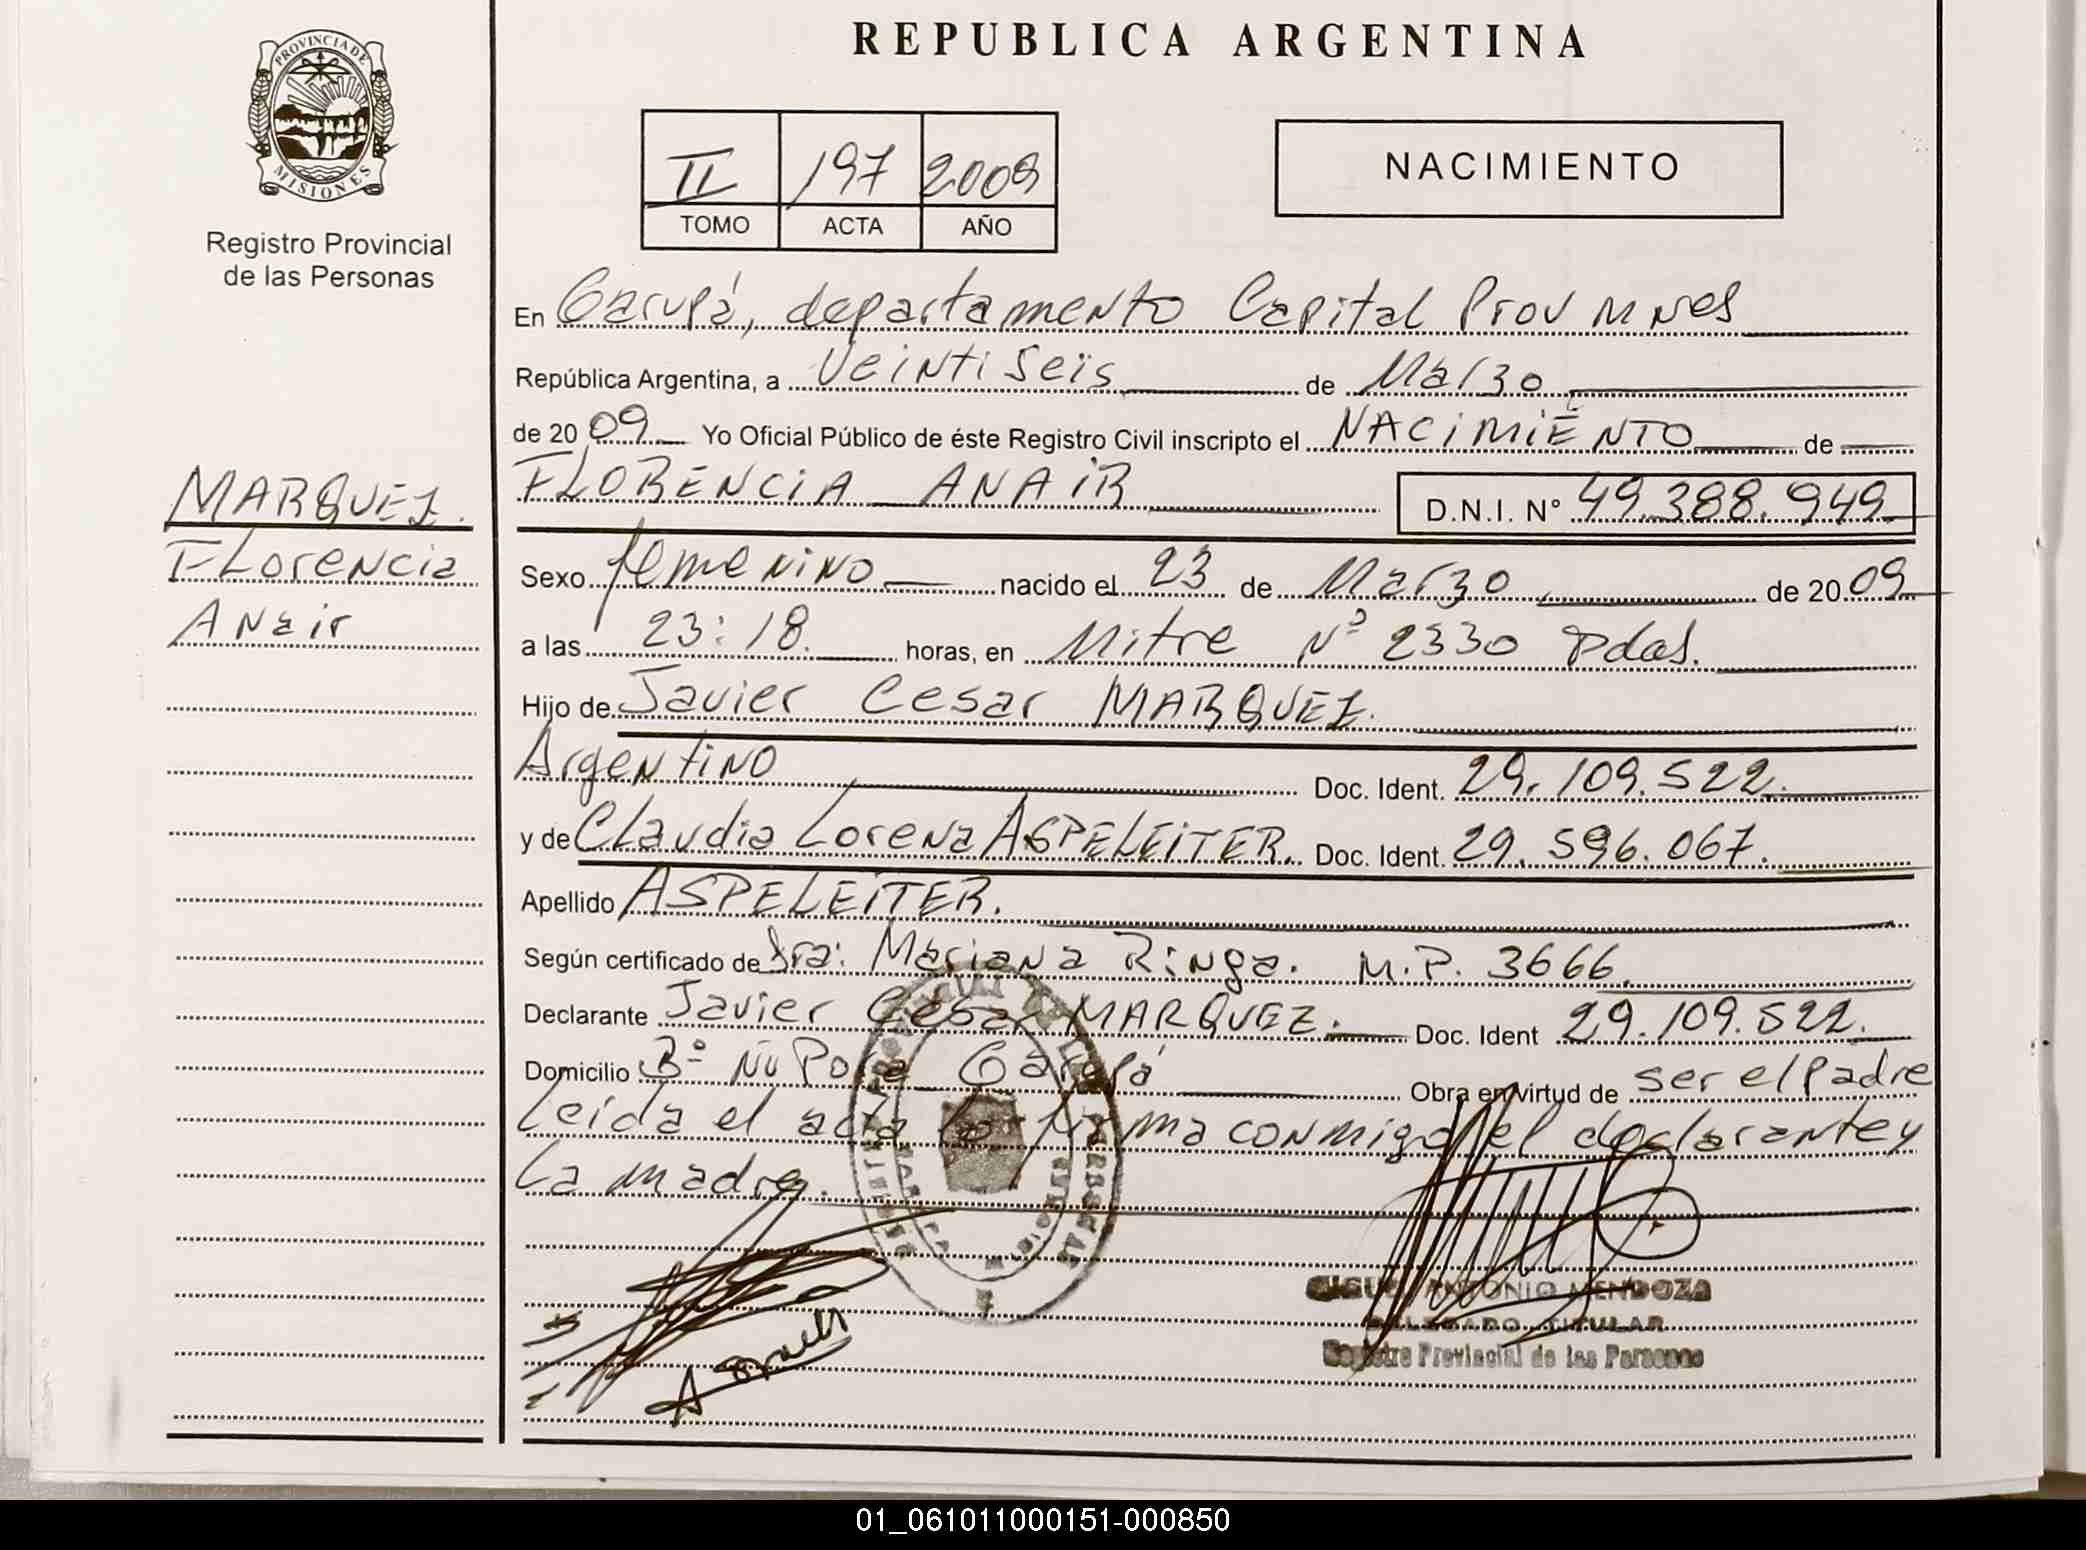 REPUBLICA ARGENTINA
PROVINCIA DE
MISIONES
Registro Provincial
de las Personas
II 197 2009
TOMO ACTA AÑO
NACIMIENTO
En Garupá, departamento Capital Prov Mnes
República Argentina, a Veintiseis de Marzo
de 2009 Yo Oficial Público de éste Registro Civil inscripto el NACIMIENTO de
FLORENCIA ANAIR D.N.I. Nº 49.388.949
MARQUEZ.
Florencia
Anair
Sexo femenino nacido el 23 de Marzo de 2009
a las 23:18. horas, en Mitre Nº 2330 Pdas.
Hijo de Javier Cesar MARQUEZ.
Argentino Doc. Ident. 29.109.522.
y de Claudia Lorena ASPELEITER. Doc. Ident. 29.596.067.
Apellido ASPELEITER.
Según certificado de Dra: Mariana Ringa. M.P. 3666
Declarante Javier Cesar MARQUEZ. Doc. Ident 29.109.522.
Domicilio Bº Ñu Pora Garupá Obra en virtud de ser el Padre
Leida el acta la firma conmigo el declarante y
La madre.
ANTONIO MENDOZA
DELEGADO TITULAR
Registro Provincial de las Personas
01_061011000151-000850